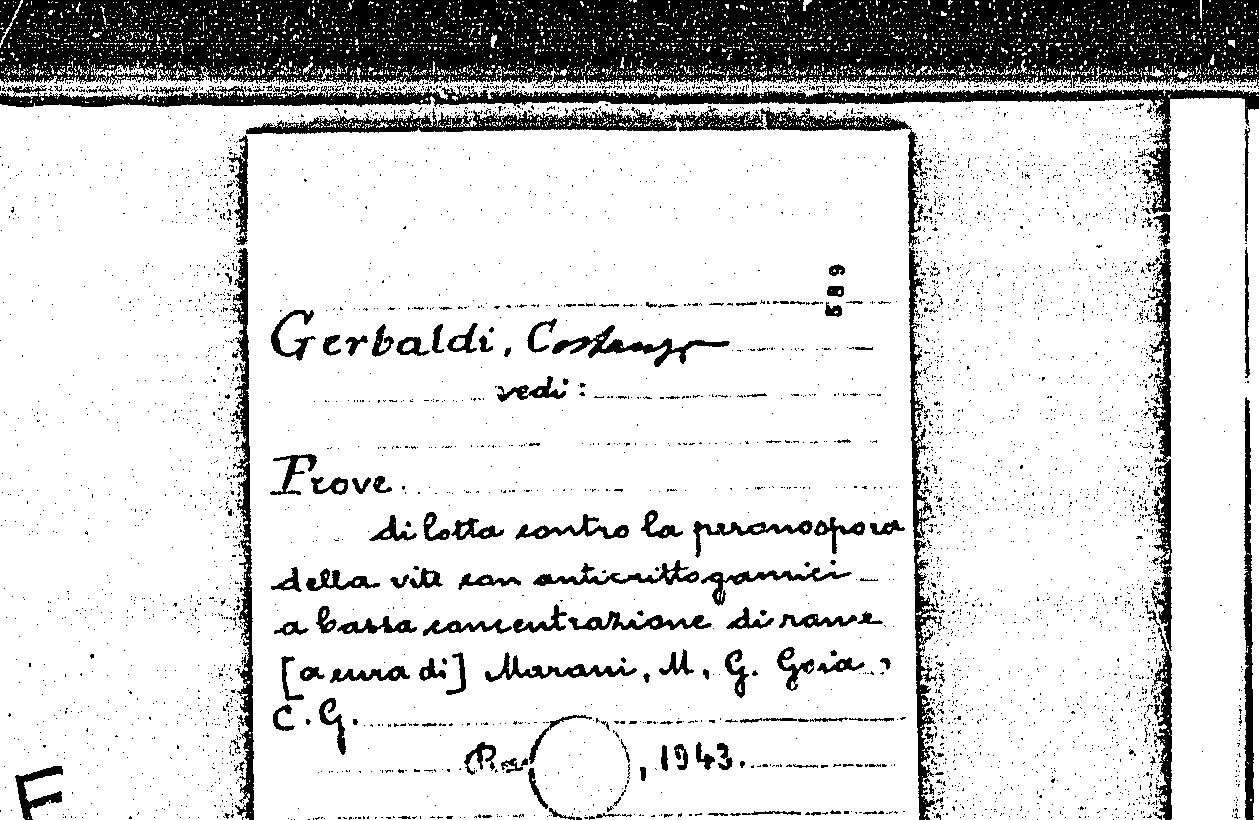 589
Gerbaldi, Costanzo
vedi:
Prove.
di lotta contro la peronospora
della vite con anticrittogamici
a bassa concentrazione di rame
[a cura di] Marani, M, G. Goia,
C.G.
, 1943.
F